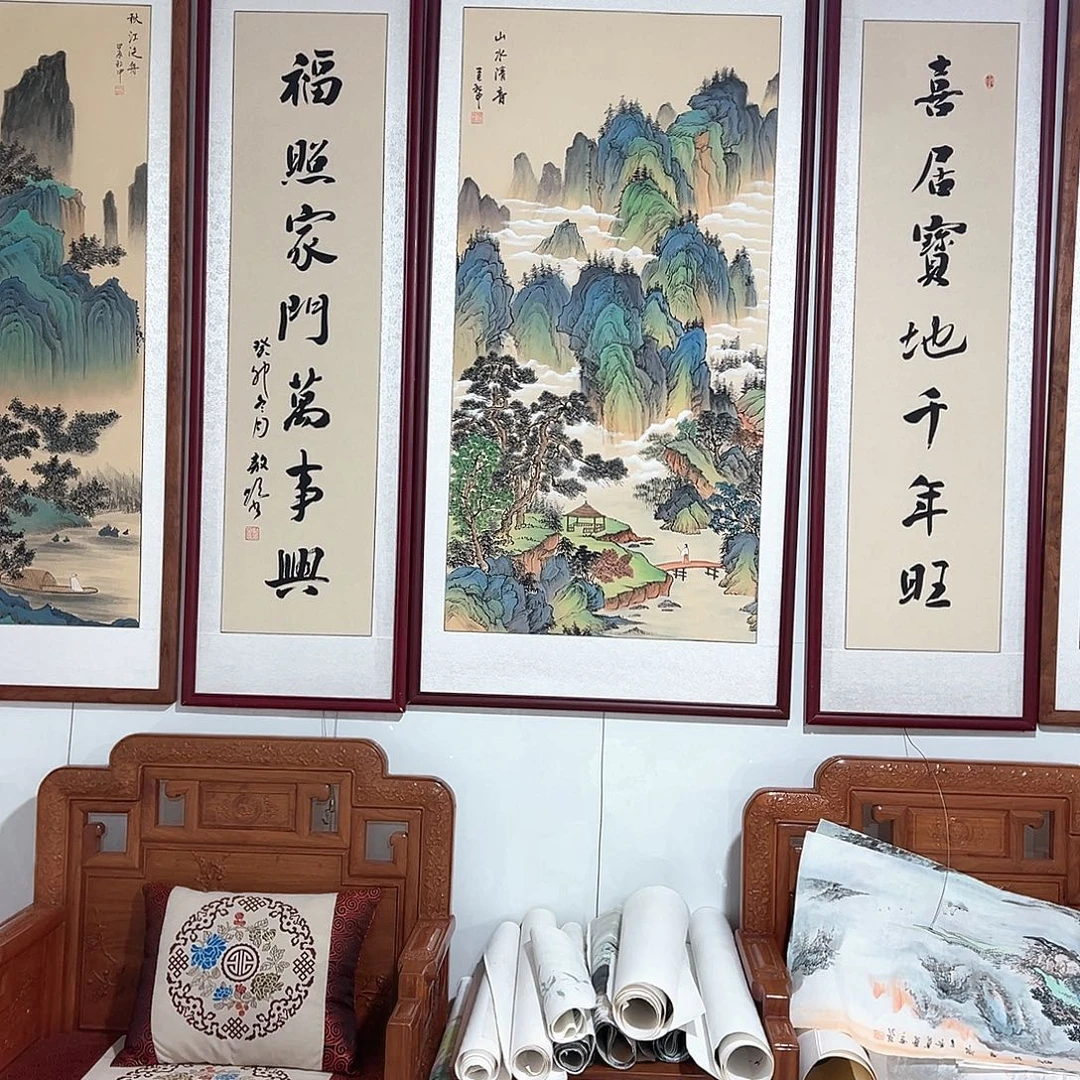 喜居寶地千年旺
山水清音
福照家門萬事興
癸卯冬月
秋江泛舟